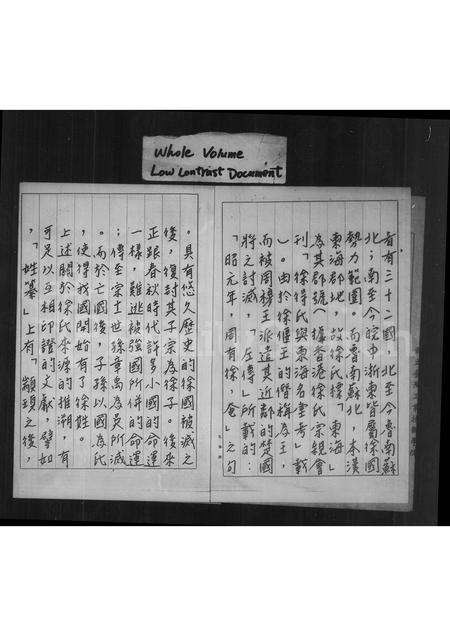 Whole Volume
Low Contrast Document
者有三十二國 北至今魯南蘇
北;南至今皖中浙東皆屬徐國
勢力範圍。而魯南蘇北,本漢
東海郡地,故徐氏標「東海」
為其郡號(據香港徐氏宗親會
刊「徐得氏與東海名堂考」載
)。由於徐偃王的僭稱為王,
而被周穆王派遣其近郡的楚國
將之討滅,「左傳」所載的:
「昭元年,周有徐、奄」之句
。具有悠久歷史的徐國被滅之
後,復封其子宗為徐子。後來
正跟春秋時代許多小國的命運
一樣,難逃被強國所併的命運
;傳至宗十一世孫章禹為吳所滅
。而於亡國後,子孫以國為氏
,使得我國開始有了徐姓。
上述關於徐氏來源的推溯,有
可足以互相印證的文獻,譬如
,「姓纂」上有「顓頊之後,